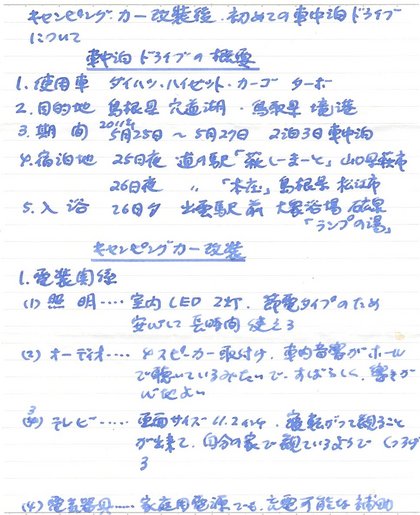 キャンピングカー改装後、初めての車中泊ドライブ
について
車中泊ドライブの概要
1. 使用車 ダイハツ・ハイゼット・カーゴ ターボ
2. 目的地 島根県 宍道湖・鳥取県 境港
3. 期間 5月25日 ~ 5月27日 2泊3日車中泊
4. 宿泊地 25日夜 道の駅「萩しーまーと」山口県萩市
26日夜 〃 「本庄」島根県 松江市
5. 入浴 26日夕 出雲駅前 大衆浴場
「ランプの湯」
キャンピングカー改装
1. 電装関係
(1) 照明‥‥ 室内LED 2灯、節電タイプのため
安心して長時間使える
(2) オーディオ‥‥ 4スピーカー取付け、車内音響がホール
で聴いているみたいで、すばらしく、響きが
心地よい
テレビ‥‥ 画面サイズ 11.2インチ、寝転がって観ること
が出来て、自分の家で観ているようで くつろげ
る
(4) 電気器具‥‥ 家庭用電源でも、充電可能な補助